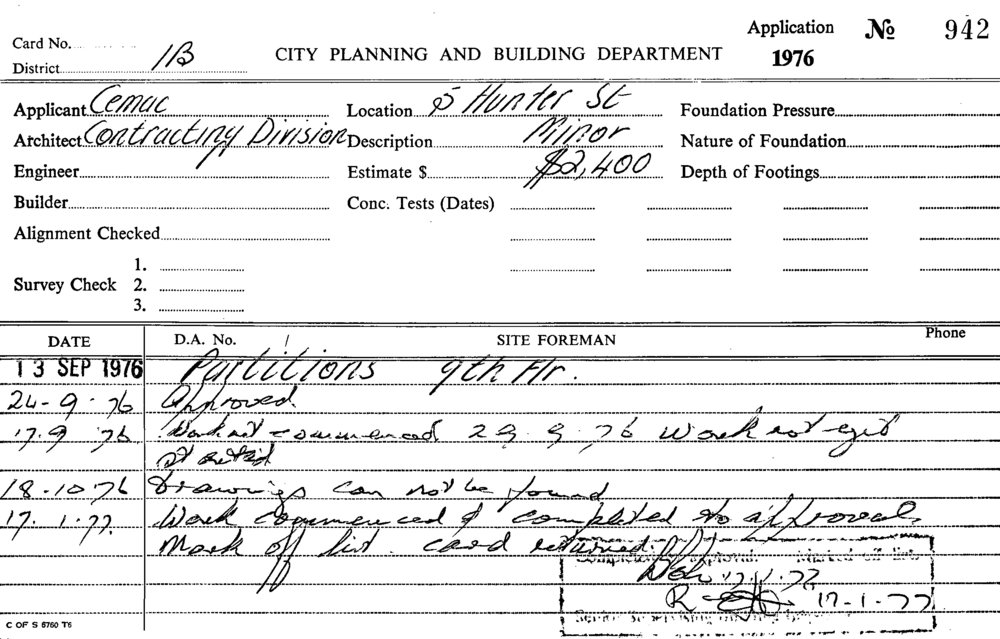 Application № 942
Card No.
District 1B
CITY PLANNING AND BUILDING DEPARTMENT
1976
Applicant Cemac Location 5 Hunter St Foundation Pressure
Architect Contracting Division Description Minor Nature of Foundation
Engineer Estimate $ $2,400 Depth of Footings
Builder Conc. Tests (Dates)
Alignment Checked
1.
Survey Check 2.
3.
DATE D.A. No. SITE FOREMAN Phone
13 SEP 1976 Partitions 9th Flr.
24-9-76 Approved.
17.9.76 Work not commenced 29.9.76 Work not
started
18-10-76 Drawings can not be found
17.1.77. Work commenced & completed to approval.
Mark off list. card returned.
Marked off list
17.1.77
17-1-77
C OF S 6760 T6